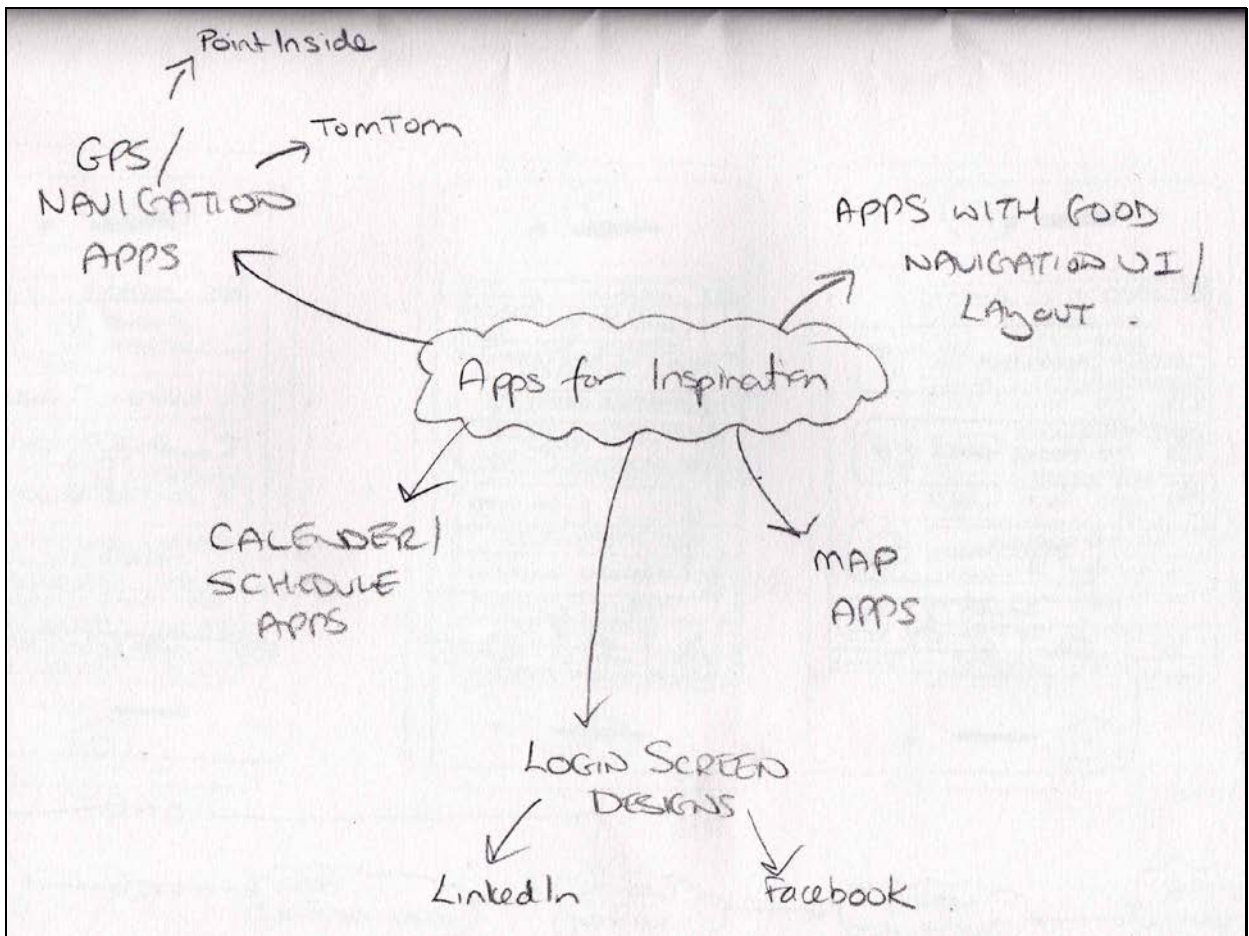 Point Inside
TomTom
GPS/
NAVIGATION
APPS
APPS WITH GOOD
NAVIGATION UI/
LAYOUT.
Apps for Inspiration
CALENDER/
SCHEDULE
APPS
MAP
APPS
LOGIN SCREEN
DESIGNS
LinkedIn
Facebook